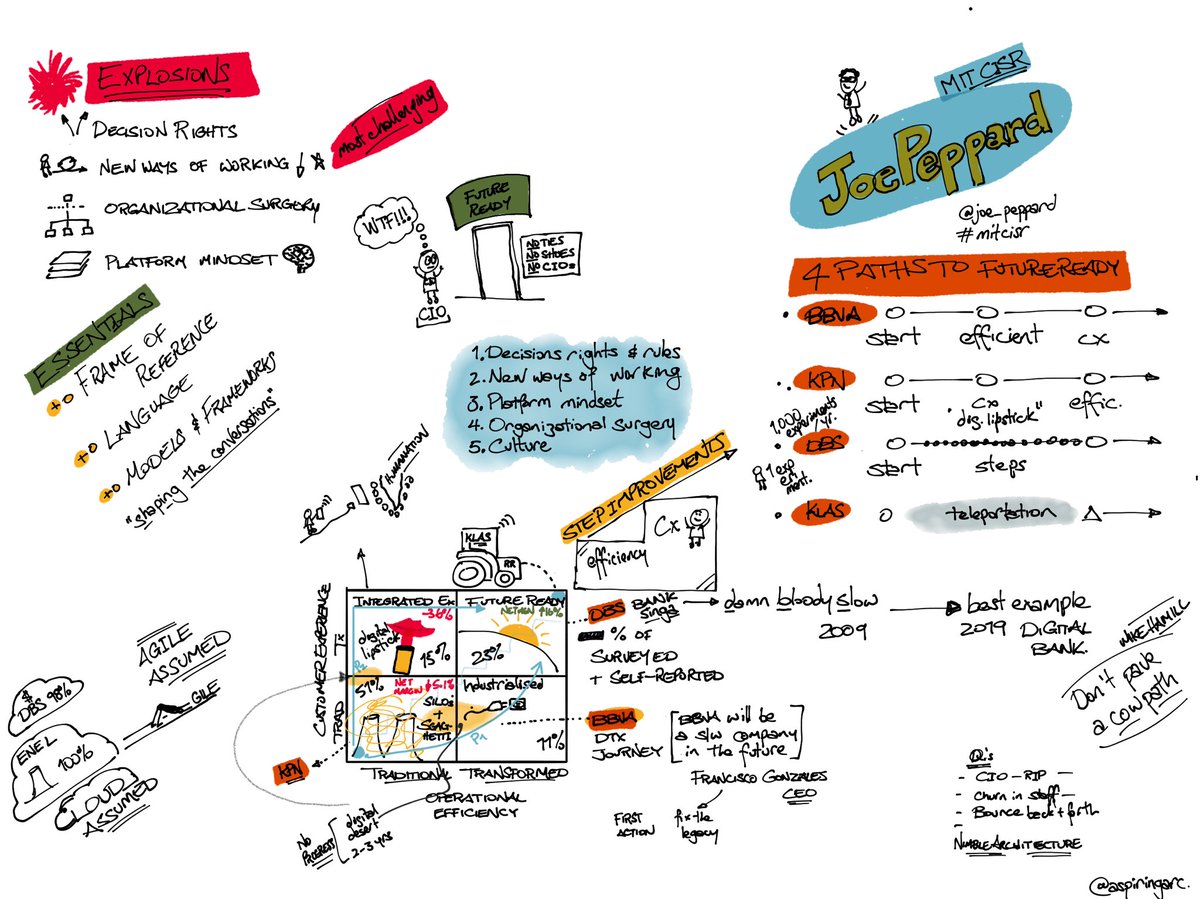 EXPLOSIONS
DECISION RIGHTS
NEW WAYS OF WORKING
ORGANIZATIONAL SURGERY
PLATFORM MINDSET
most challenging
WTF!!!
CIO
FUTURE
READY
NO TIES
NO SHOES
NO CIOs
MIT CISR
Joe Peppard
@joe_peppard
#mitcisr
4 PATHS TO FUTURE READY
BBVA
start
efficient
cx
KPN
start
cx
"dig. lipstick"
effic.
1.000
experiments
/yr.
DBS
start
steps
1 exp
eri
ment.
KLAS
teleportation
ESSENTIALS
FRAME OF
REFERENCE
LANGUAGE
MODELS & FRAMEWORKS
"shaping the conversations"
1. Decisions rights & rules
2. New ways of working
3. Platform mindset
4. Organizational surgery
5. Culture
STEP IMPROVEMENTS
efficiency
Cx
KLAS
RR
CUSTOMER EXPERIENCE
TRAD
TX
INTEGRATED EX
-3.6%
digital
lipstick
15%
FUTURE READY
NET MGN
16%
23%
P2
51%
NET
MARGIN
-5.1%
SILOS
+
SPAGHETTI
Industrialised
P1
11%
TRADITIONAL
TRANSFORMED
OPERATIONAL
EFFICIENCY
KPN
NO
PROGRESS
digital
desert
2-3 yrs
DBS BANK
Singa
damn bloody slow
2009
best example
2019 DIGITAL
BANK.
% OF
SURVEYED
+ SELF-REPORTED
BBVA
DTX
JOURNEY
BBVA will be
a s/w company
in the future
FRANCISCO GONZALES
CEO
FIRST
ACTION
fix the
legacy
AGILE
ASSUMED
GILE
$
DBS 98%
ENEL
100%
CLOUD
ASSUMED
MIKE HAMILL
Don't pave
a cowpath
Q's
- CIO - RIP -
- Churn in staff -
- Bounce back + forth
NIMBLE ARCHITECTURE
@aspiringarc.